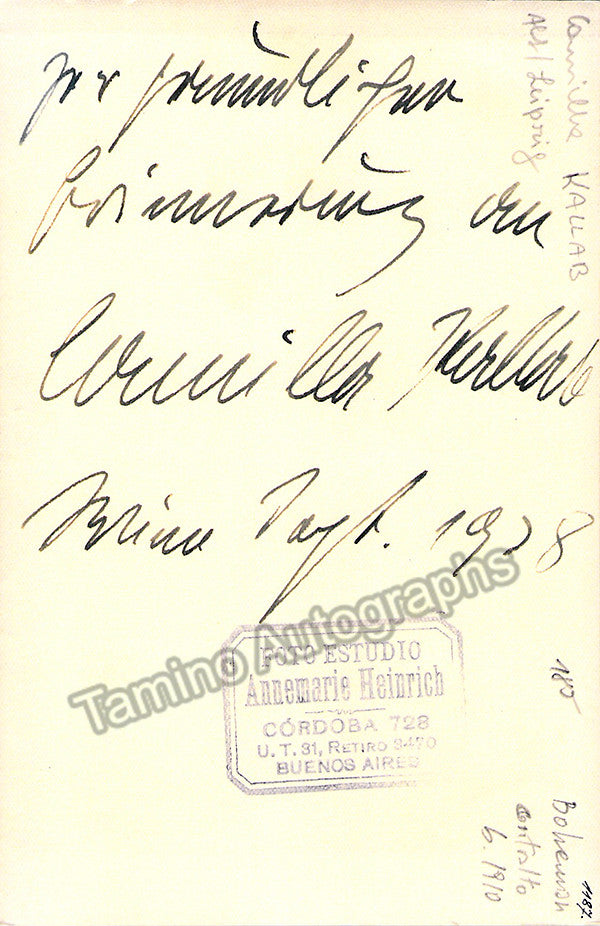 zur freundlichen
Erinnerung an
Camilla Kallab
Sept. 1938
FOTO ESTUDIO
Annemarie Heinrich
CÓRDOBA 728
U. T. 31, RETIRO 3470
BUENOS AIRES
Tamino Autographs
Camilla KALLAB
Alt/Leipzig
185
Bohemian
contralto
b. 1910
1187.